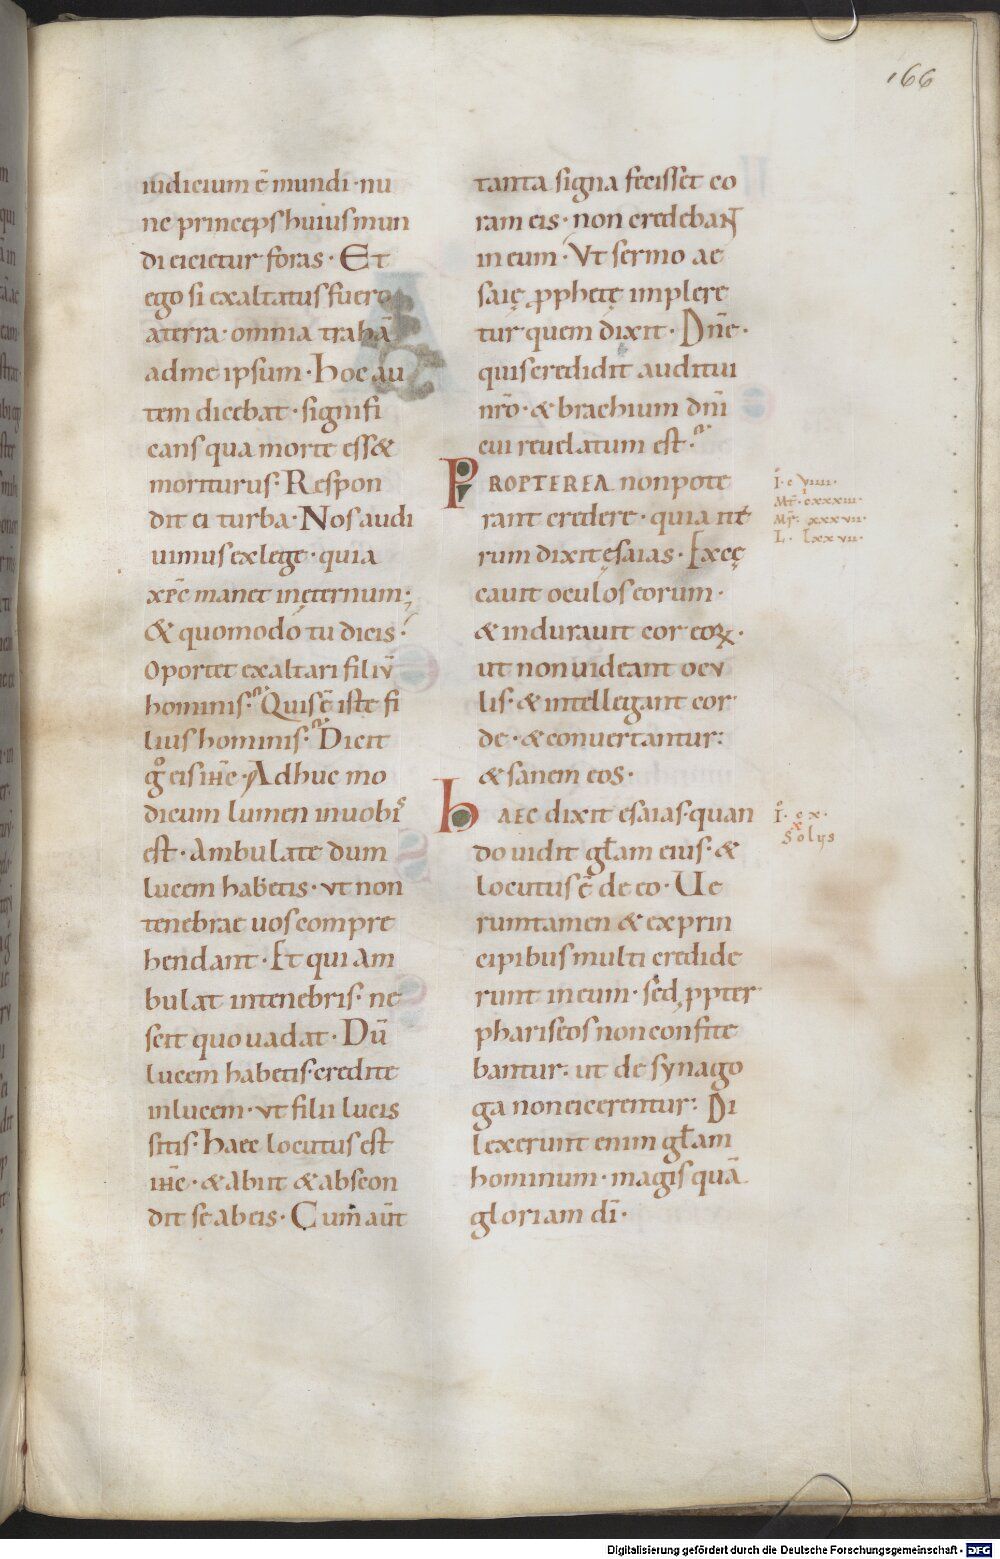 166
iudicium ē mundi · nu
nc princeps huius mun
di eicietur foras · Et
ego si exaltatus fuero
a terra · omnia trahā
ad me ipsum · Hoc au
tem dicebat · signifi
cans qua morte ess&
moriturus · Respon
dit ei turba · Nos audi
uimus ex lege · quia
xp̄c manet in ęternum ;
& quomodo tu dicis ·
Oportet exaltari filiū
hominis · Quis ē iste fi
lius hominis · Dicit
g̊ eis ih̄c · Adhuc mo
dicum lumen in uobis
est · Ambulate dum
lucem habetis · ut non
tenebrae uos compre
hendant · Et qui am
bulat in tenebris · ne
scit quo uadat · Dū
lucem habetis · credite
in lucem · ut filii lucis
sitis · Haec locutus est
ih̄c · & abiit & abscon
dit se ab eis · Cum aūt
tanta signa fecisset co
ram eis · non credebant
in eum · Ut sermo ae
saię p̱phetę implere
tur quem dixit · Dn̄e ·
quis credidit auditui
nr̄o · & brachium dn̄i
cui reuelatum est ·
PROPTEREA non pote
rant credere · quia ite
rum dixit ęsaias · Excę
cauit oculos eorum ·
& indurauit cor eoꝝ ·
ut non uideant ocu
lis · & intellegant cor
de · & conuertantur :
& sanem eos ·
HAEC dixit esaias · quan
do uidit gl̄am eius · &
locutus ē de eo · Ue
runtamen & ex prin
cipibus multi credide
runt in eum · sed p̱pter
phariseos non confite
bantur : ut de synago
ga non eicerentur : Di
lexerunt enim gl̄am
hominum · magis quā
gloriam dī ·
I · c viiii ·
Mt · cxxxiii ·
Mr · xxxvii ·
L · lxxvii ·
I · cx ·
Solus
Digitalisierung gefördert durch die Deutsche Forschungsgemeinschaft - DFG